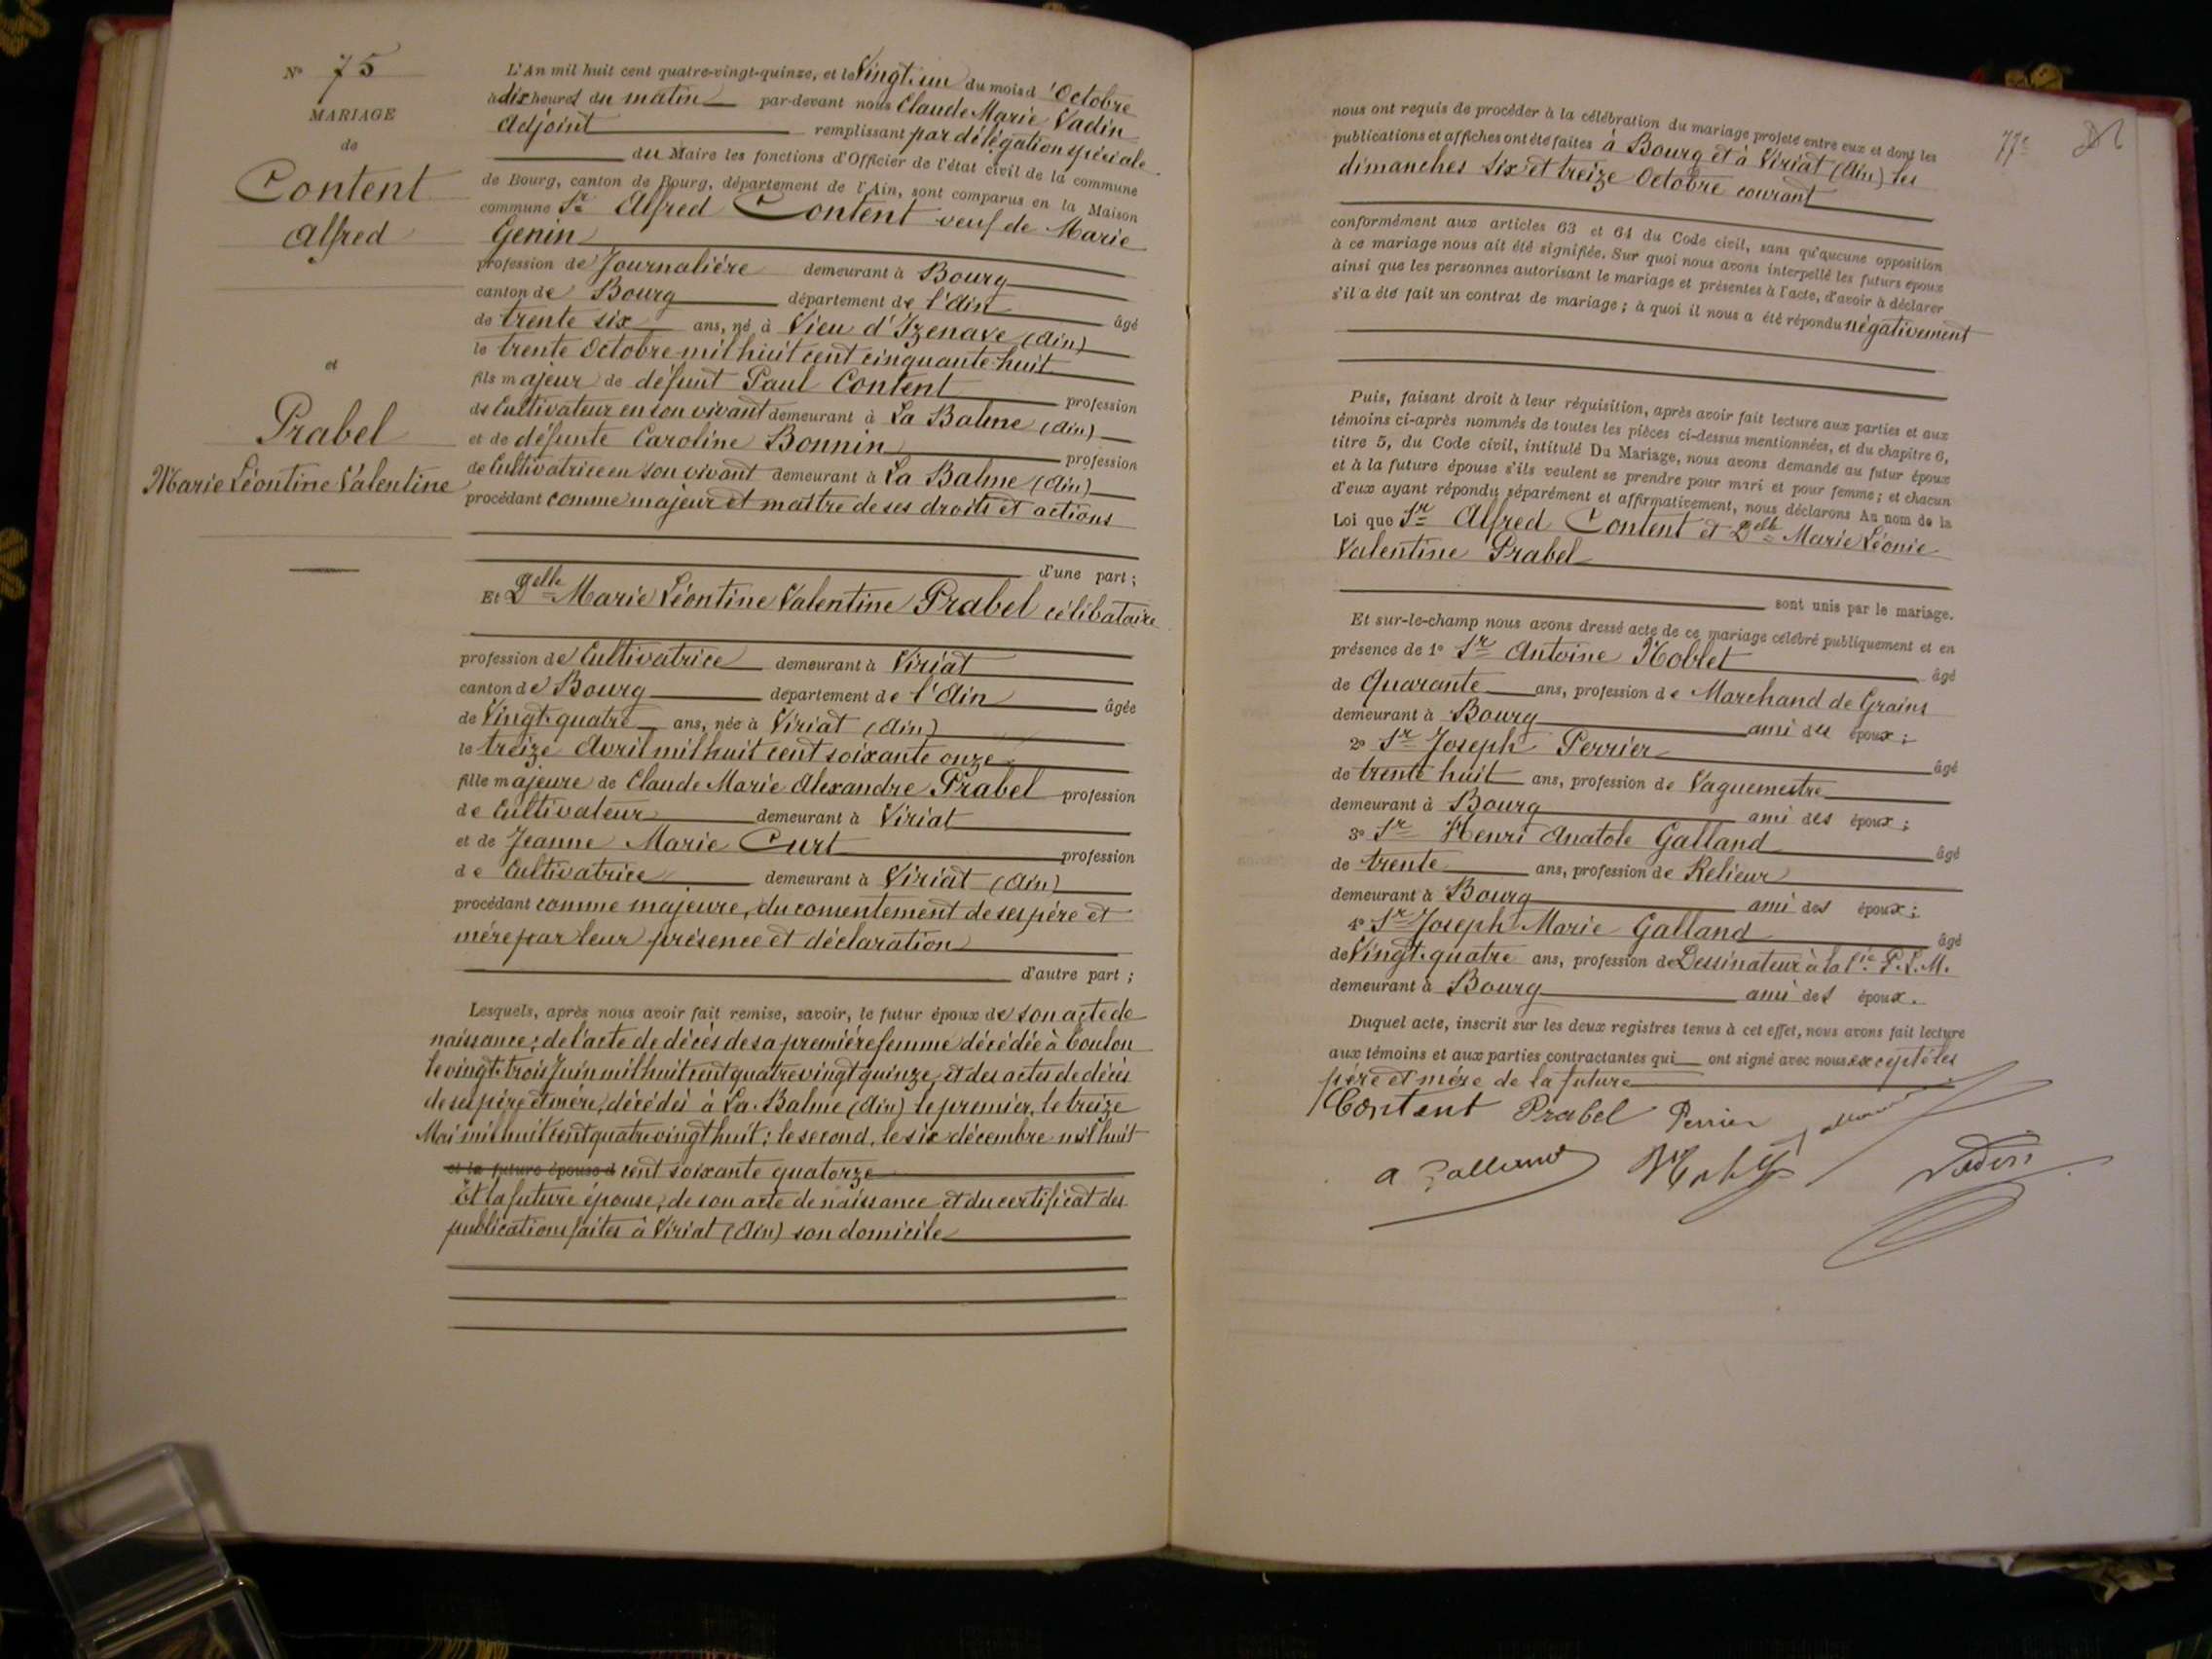 N° 75
MARIAGE
de
Content
Alfred
et
Prabel
Marie Léontine Valentine
L'An mil huit cent quatre-vingt-quinze, et le Vingt-un du mois d'Octobre
à dix heures du matin par-devant nous Claude Marie Vadin
Adjoint remplissant par délégation spéciale
du Maire les fonctions d'Officier de l'état civil de la commune
de Bourg, canton de Bourg, département de l'Ain, sont comparus en la Maison
commune Sr Alfred Content veuf de Marie
Genin
profession de Journalière demeurant à Bourg
canton de Bourg département de l'Ain âgé
de trente six ans, né à Vieu d'Izenave (Ain)
le trente Octobre mil huit cent cinquante-huit
fils majeur de défunt Paul Content profession
de Cultivateur en son vivant demeurant à La Balme (Ain)
et de défunte Caroline Bonnin profession
de Cultivatrice en son vivant demeurant à La Balme (Ain)
procédant comme majeur et maître de ses droits et actions
d'une part ;
Et Delle Marie Léontine Valentine Prabel célibataire
profession de Cultivatrice demeurant à Viriat
canton de Bourg département de l'Ain âgée
de Vingt-quatre ans, née à Viriat (Ain)
le treize Avril mil huit cent soixante onze
fille majeure de Claude Marie Alexandre Prabel profession
de Cultivateur demeurant à Viriat
et de Jeanne Marie Curt profession
de Cultivatrice demeurant à Viriat (Ain)
procédant comme majeure, du consentement de ses père et
mère par leur présence et déclaration
d'autre part ;
Lesquels, après nous avoir fait remise, savoir, le futur époux de son acte de
naissance ; de l'acte de décès de sa première femme décédée à Toulon
le vingt-trois Juin mil huit cent quatre vingt quinze, et des actes de décès
de ses père et mère, décédés à La Balme (Ain) le premier, le treize
Mai mil huit cent quatre vingt huit ; le second, le six décembre mil huit
et la future épouse d cent soixante quatorze
Et la future épouse, de son acte de naissance et du certificat des
publications faites à Viriat (Ain) son domicile
77e
nous ont requis de procéder à la célébration du mariage projeté entre eux et dont les
publications et affiches ont été faites à Bourg et à Viriat (Ain) les
dimanches six et treize Octobre courant
conformément aux articles 63 et 64 du Code civil, sans qu'aucune opposition
à ce mariage nous ait été signifiée. Sur quoi nous avons interpellé les futurs époux
ainsi que les personnes autorisant le mariage et présentes à l'acte, d'avoir à déclarer
s'il a été fait un contrat de mariage ; à quoi il nous a été répondu négativement
Puis, faisant droit à leur réquisition, après avoir fait lecture aux parties et aux
témoins ci-après nommés de toutes les pièces ci-dessus mentionnées, et du chapitre 6,
titre 5, du Code civil, intitulé Du Mariage, nous avons demandé au futur époux
et à la future épouse s'ils veulent se prendre pour mari et pour femme ; et chacun
d'eux ayant répondu séparément et affirmativement, nous déclarons Au nom de la
Loi que Sr Alfred Content et Delle Marie Léonie
Valentine Prabel
sont unis par le mariage.
Et sur-le-champ nous avons dressé acte de ce mariage célébré publiquement et en
présence de 1° Sr Antoine Noblet âgé
de Quarante ans, profession de Marchand de Grains
demeurant à Bourg ami des époux ;
2° Sr Joseph Perrier âgé
de trente huit ans, profession de Vaguemestre
demeurant à Bourg ami des époux ;
3° Sr Henri Anatole Galland âgé
de trente ans, profession de Relieur
demeurant à Bourg ami des époux ;
4° Sr Joseph Marie Galland âgé
de Vingt-quatre ans, profession de Dessinateur à la Cie P.L.M.
demeurant à Bourg ami des époux.
Duquel acte, inscrit sur les deux registres tenus à cet effet, nous avons fait lecture
aux témoins et aux parties contractantes qui ont signé avec nous excepté les
père et mère de la future
Content Prabel Perrier
a Galland Noblet Vadin